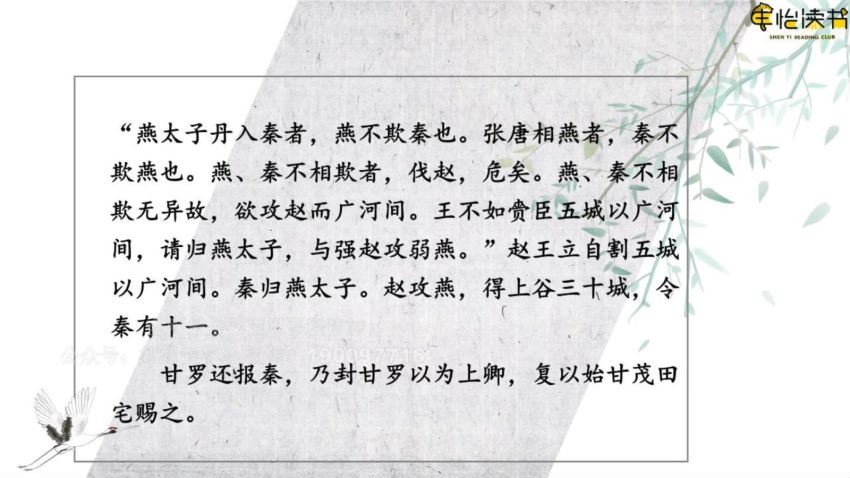 申怡读书
SHEN YI READING CLUB
“燕太子丹入秦者，燕不欺秦也。张唐相燕者，秦不
欺燕也。燕、秦不相欺者，伐赵，危矣。燕、秦不相
欺无异故，欲攻赵而广河间。王不如赍臣五城以广河
间，请归燕太子，与强赵攻弱燕。”赵王立自割五城
以广河间。秦归燕太子。赵攻燕，得上谷三十城，令
秦有十一。
公众号：
甘罗还报秦，乃封甘罗以为上卿，复以始甘茂田
宅赐之。